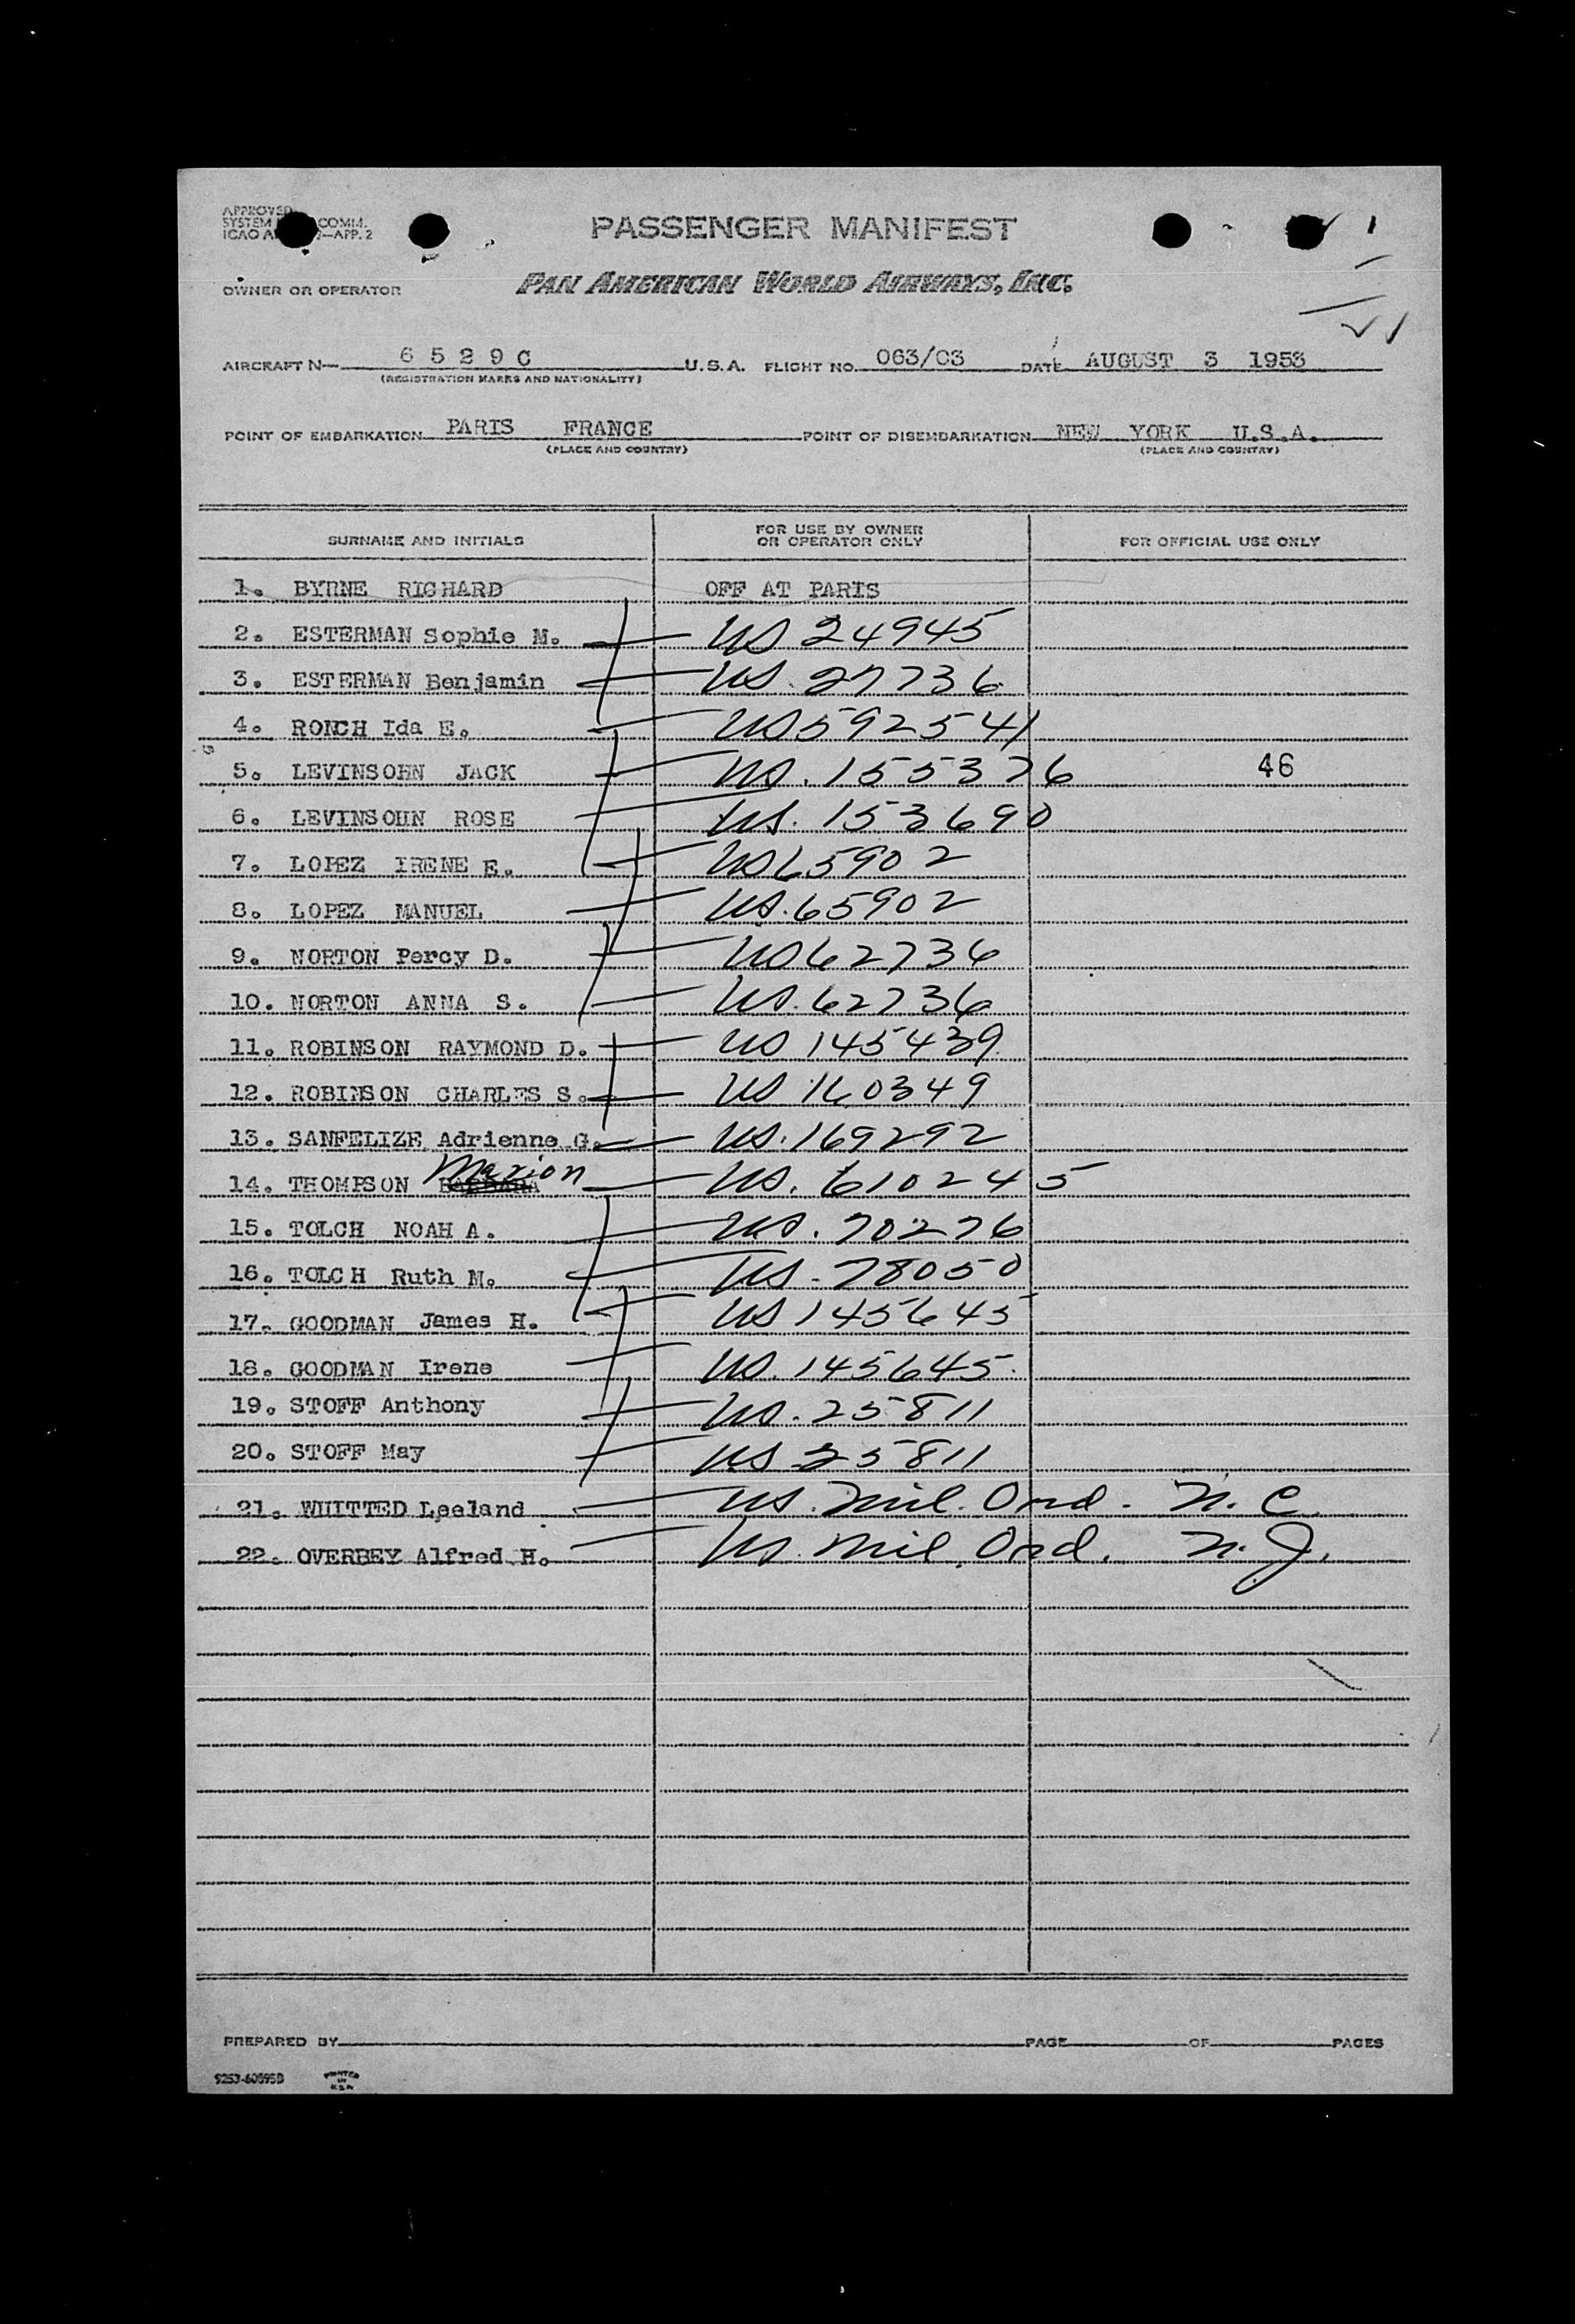 APPROVED
SYSTEM COMM.
ICAO A —APP. 2
PASSENGER MANIFEST
OWNER OR OPERATOR PAN AMERICAN WORLD AIRWAYS, INC.
AIRCRAFT N— 6 5 2 9 C U.S.A. FLIGHT NO. 063/03 DATE AUGUST 3 1953
(REGISTRATION MARKS AND NATIONALITY)
POINT OF EMBARKATION PARIS FRANCE POINT OF DISEMBARKATION NEW YORK U.S.A.
(PLACE AND COUNTRY) (PLACE AND COUNTRY)
SURNAME AND INITIALS FOR USE BY OWNER OR OPERATOR ONLY FOR OFFICIAL USE ONLY
1. BYRNE RICHARD OFF AT PARIS
2. ESTERMAN Sophie M. US 24945
3. ESTERMAN Benjamin US. 27736
4. RONCH Ida E. US 592541
5. LEVINSOHN JACK US. 155376 46
6. LEVINSOHN ROSE US. 153690
7. LOPEZ IRENE E. US 65902
8. LOPEZ MANUEL US. 65902
9. NORTON Percy D. US 62736
10. NORTON ANNA S. US. 62736
11. ROBINSON RAYMOND D. US 145439
12. ROBINSON CHARLES S. US 160349
13. SANFELIZE Adrienne G. US. 169292
Marion
14. THOMPSON BARBARA US. 610245
15. TOLCH NOAH A. US. 70276
16. TOLCH Ruth M. US. 78050
17. GOODMAN James H. US 145645
18. GOODMAN Irene US. 145645
19. STOFF Anthony US. 25811
20. STOFF May US 25811
21. WHITTED Leeland US. Mil. Ord. N.C.
22. OVERBEY Alfred H. US. Mil. Ord. N.J.
PREPARED BY PAGE OF PAGES
9253-60595B PRINTED IN U.S.A.